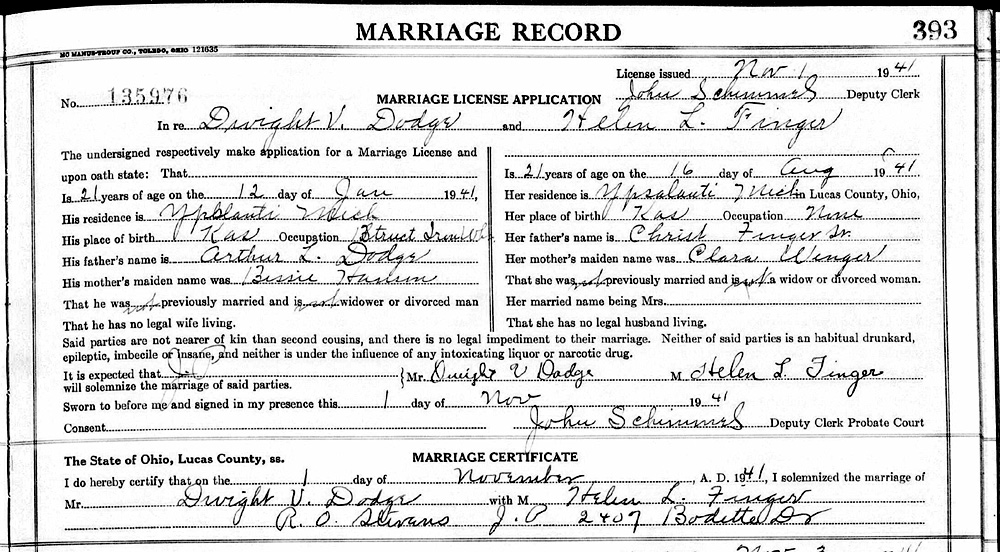 MARRIAGE RECORD 393
MC MANUS-TROUP CO., TOLEDO, OHIO 121635
License issued Nov 1 1941
No. 135976 MARRIAGE LICENSE APPLICATION John Schimmel Deputy Clerk
In re Dwight V. Dodge and Helen L. Finger
The undersigned respectively make application for a Marriage License and
upon oath state: That
Is 21 years of age on the 12 day of Jan 1941,
His residence is Ypslanti Mich
His place of birth Kas Occupation Struct Iron
His father's name is Arthur L. Dodge
His mother's maiden name was Bessie
That he was not previously married and is not widower or divorced man
That he has no legal wife living.
Is 21 years of age on the 16 day of Aug 1941
Her residence is Ypsalanti Mich in Lucas County, Ohio,
Her place of birth Kas Occupation None
Her father's name is Christ Finger Sr.
Her mother's maiden name was Clara Wenger
That she was not previously married and is not a widow or divorced woman.
Her married name being Mrs.
That she has no legal husband living.
Said parties are not nearer of kin than second cousins, and there is no legal impediment to their marriage. Neither of said parties is an habitual drunkard,
epileptic, imbecile or insane, and neither is under the influence of any intoxicating liquor or narcotic drug.
It is expected that J P
will solemnize the marriage of said parties.
Mr. Dwight V Dodge M Helen L. Finger
Sworn to before me and signed in my presence this 1 day of Nov 1941
Consent John Schimmel Deputy Clerk Probate Court
The State of Ohio, Lucas County, ss. MARRIAGE CERTIFICATE
I do hereby certify that on the 1 day of November, A. D. 1941, I solemnized the marriage of
Mr. Dwight V. Dodge with M Helen L. Finger
R. O. Stevans J. P 2407 Bodette Dr